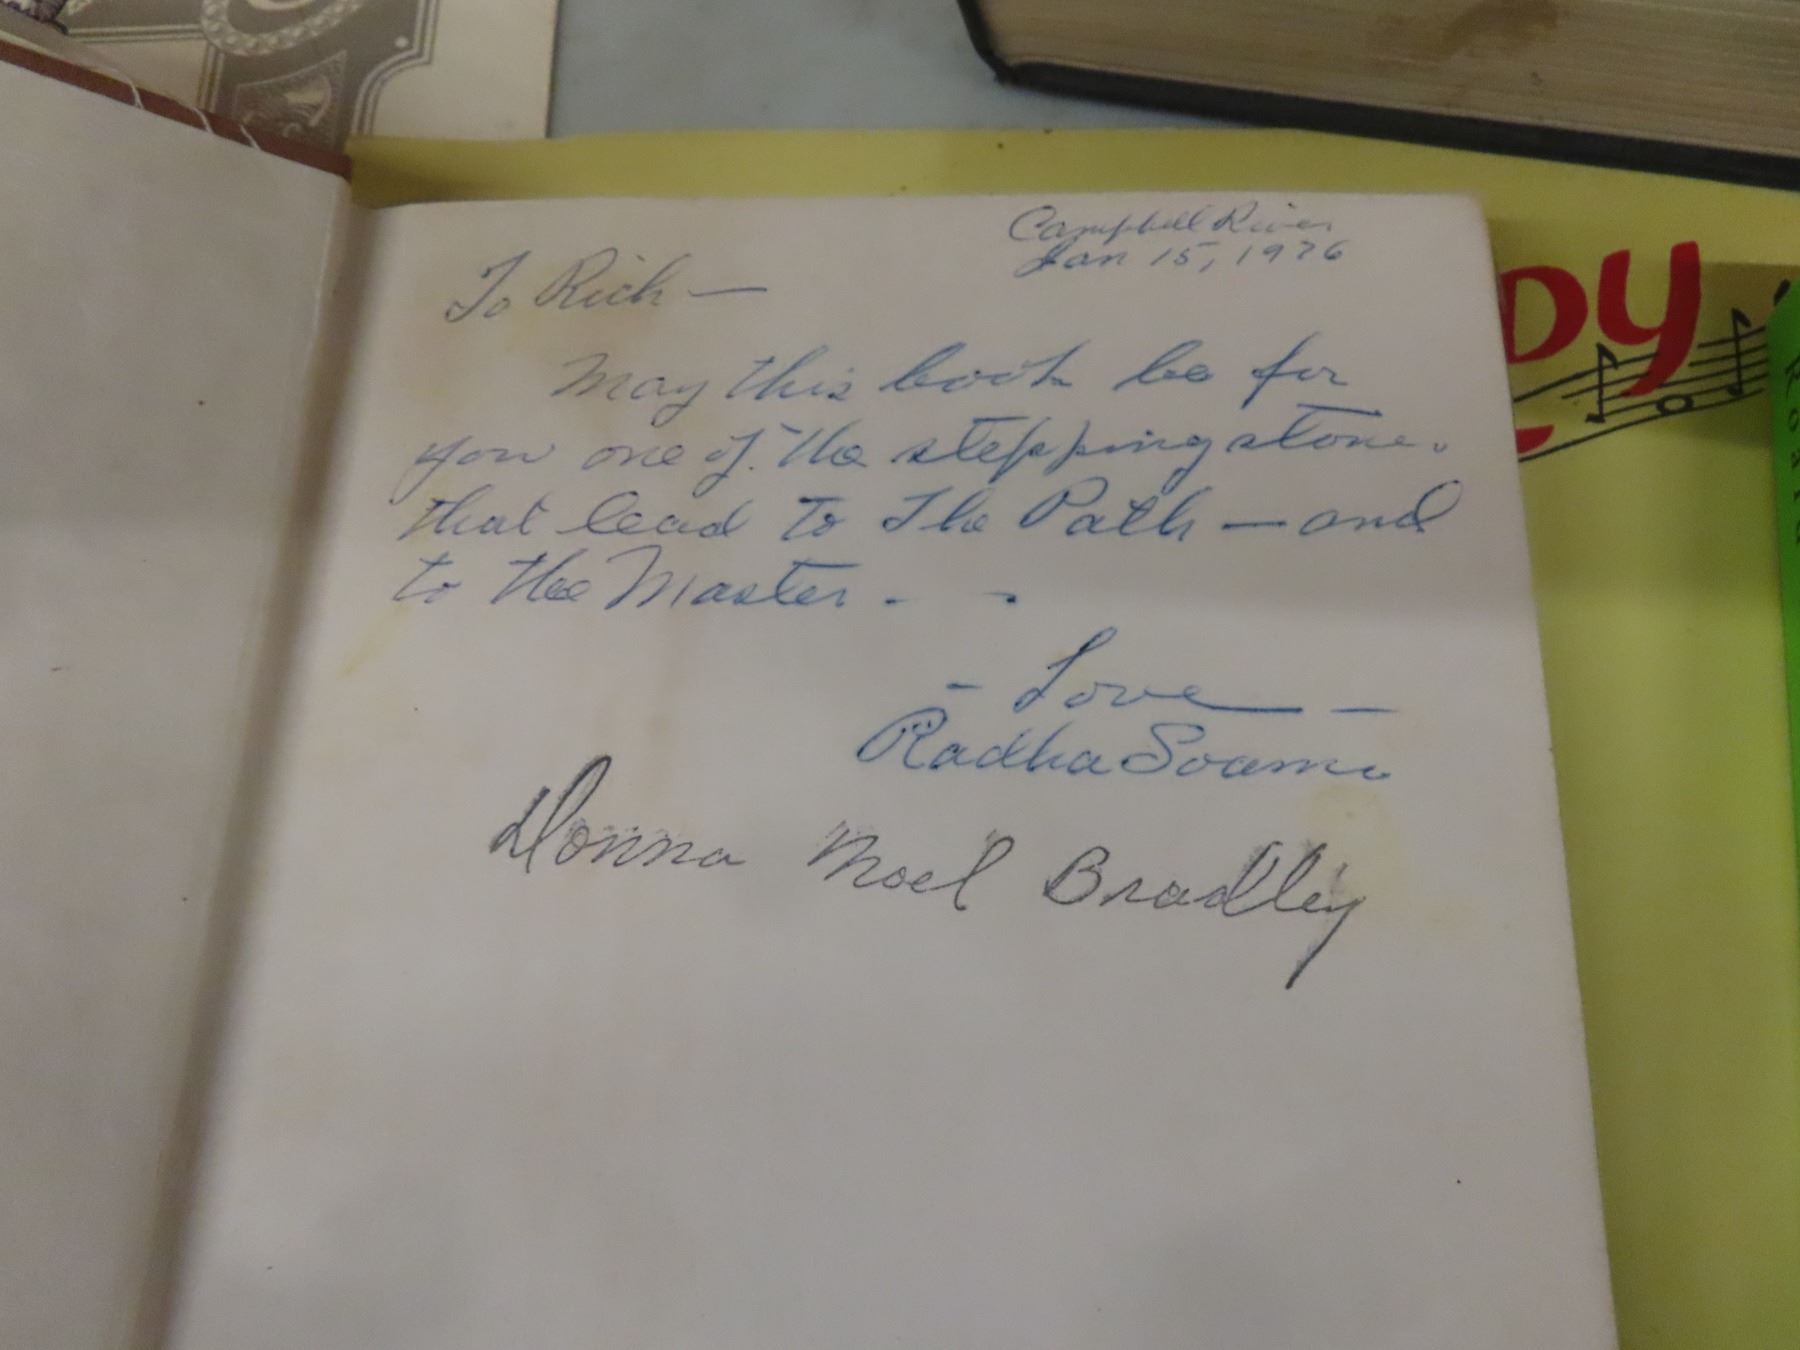 Campbell River
Jan 15, 1976
To Rich —
May this book be for
you one of the stepping stones
that lead to The Path — and
to the Master - -
- Love -
Radha Soami
Donna Noel Bradley
DY